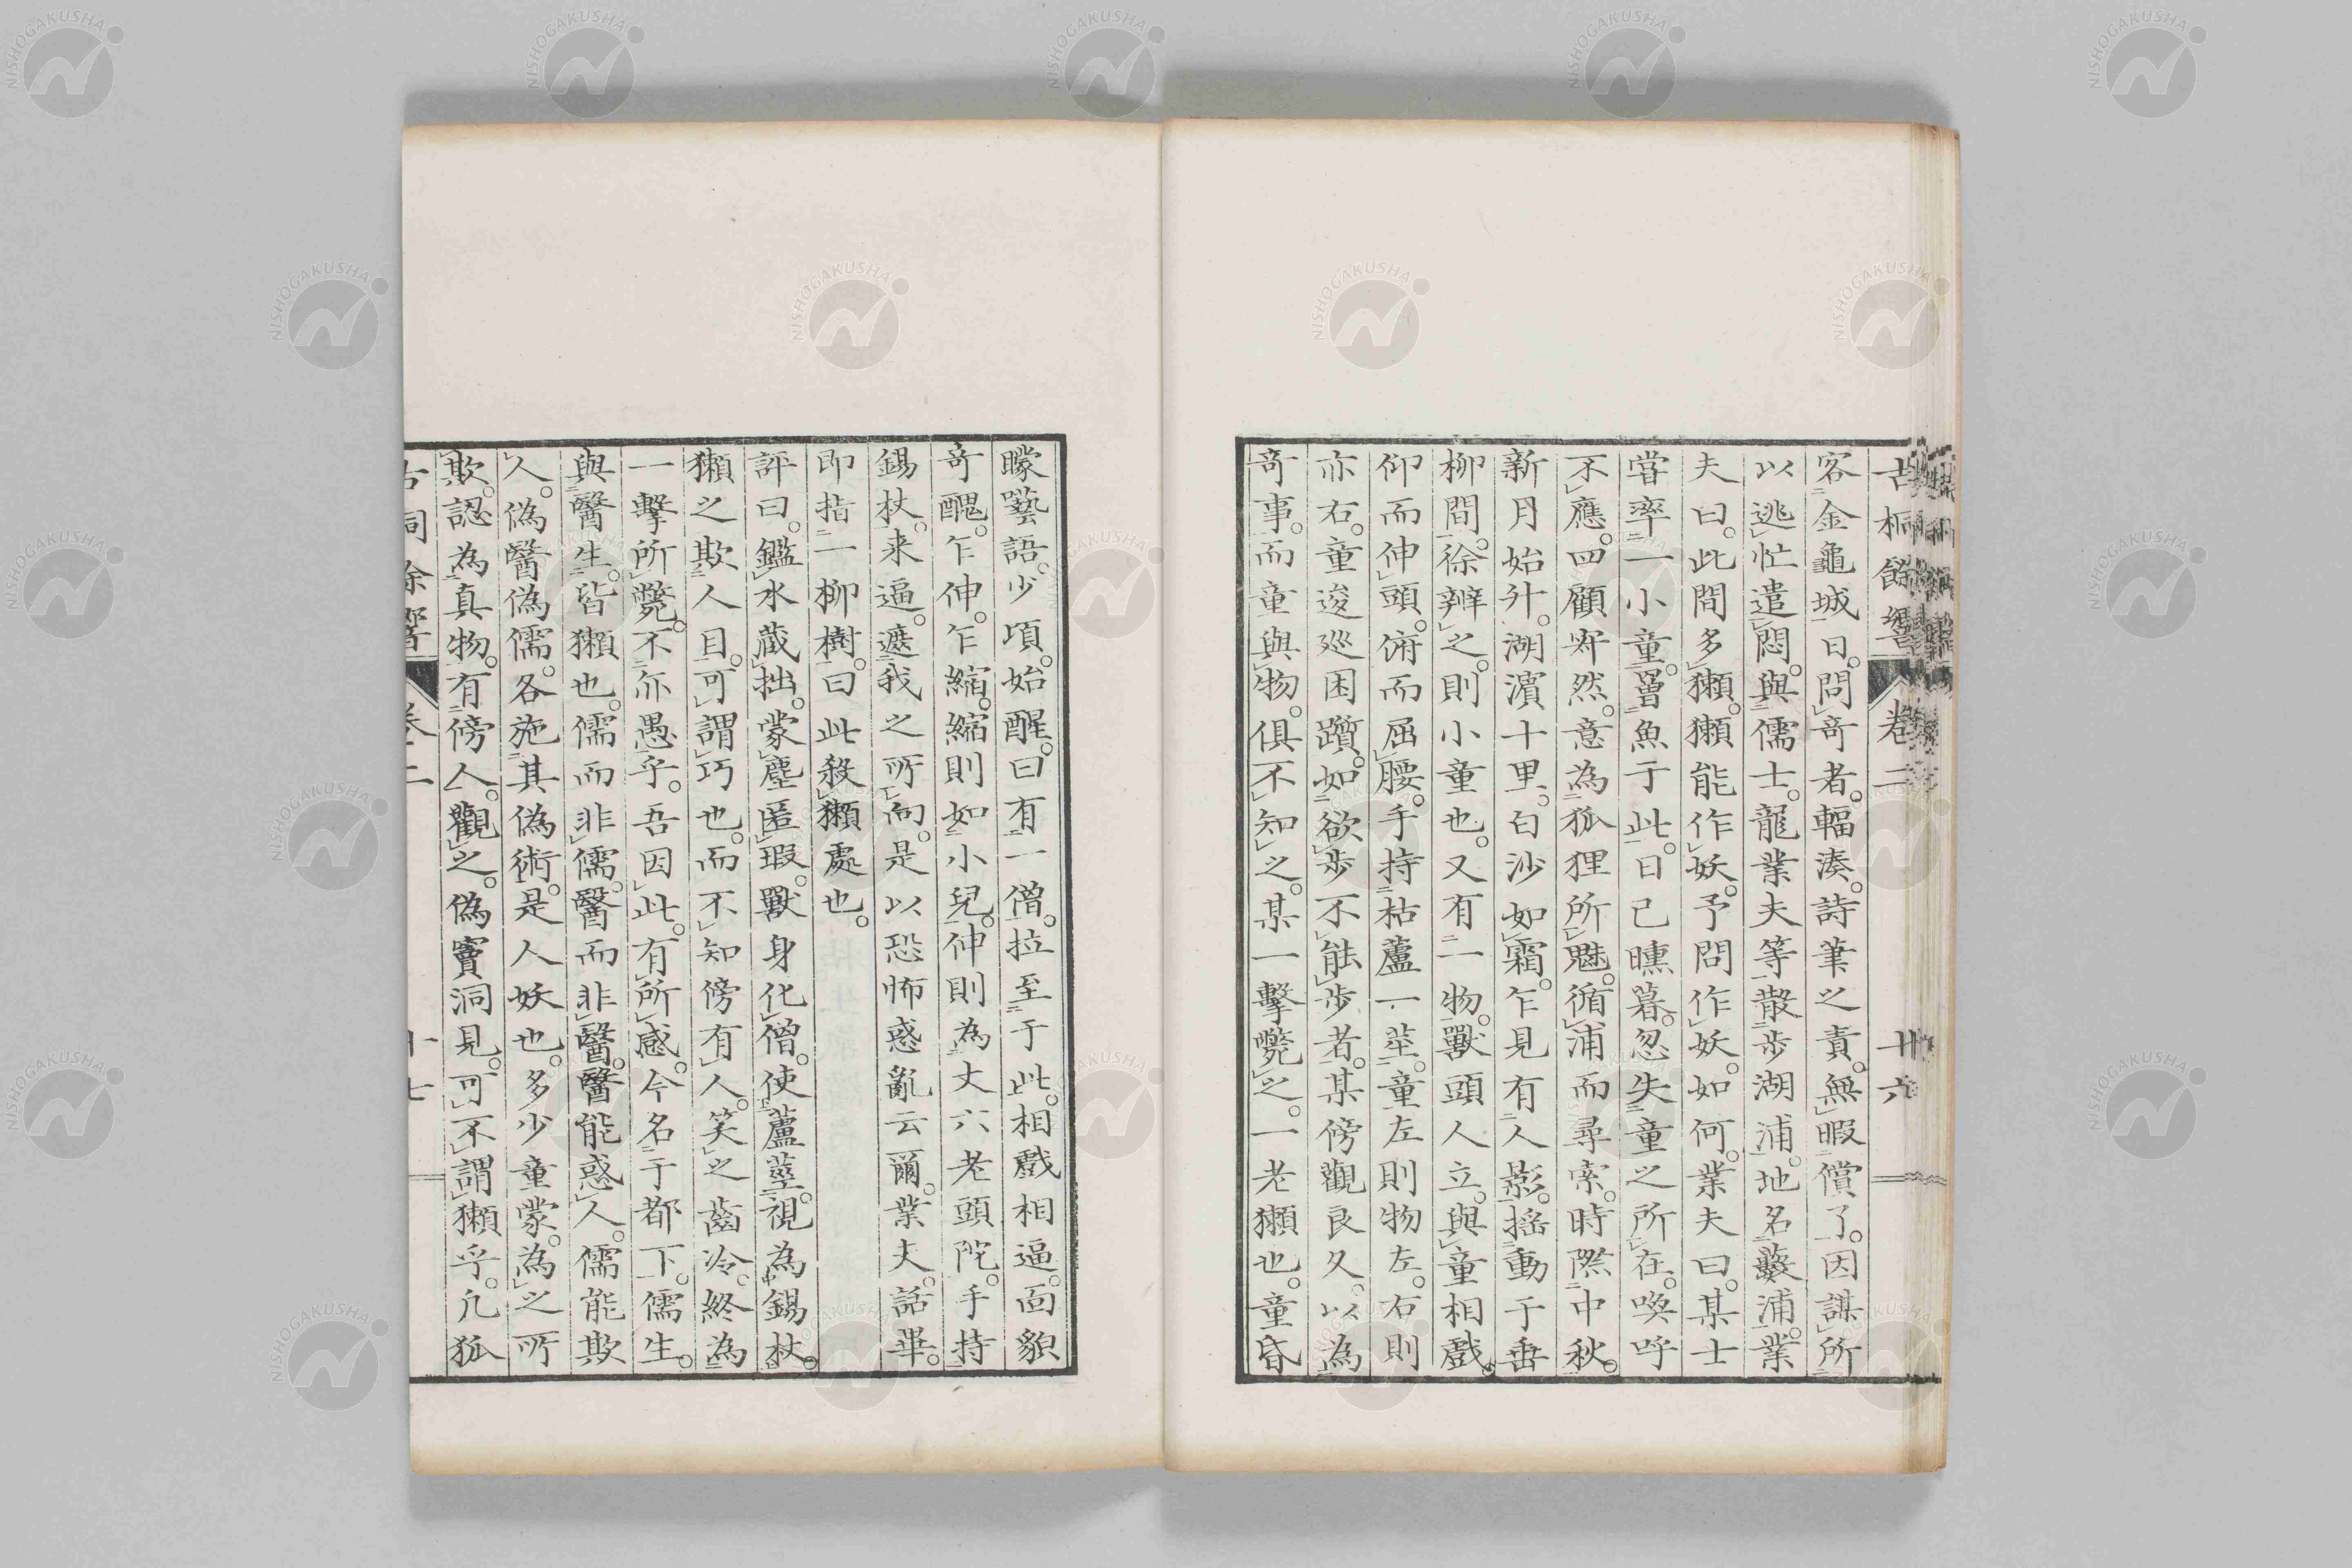 古桐餘響 卷二 十六
客金龜城日。問奇者。輻湊。詩筆之責。無暇償了。因謀所
以逃忙遣悶。與儒士。龍業夫等散步湖浦。地名藪浦。業
夫曰。此間多獺。獺能作妖。予問作妖。如何。業夫曰。某士
嘗率一小童。罾魚于此。日已曛暮。忽失童之所在。喚呼
不應。四顧寂然。意為狐狸所魅。循浦而尋索。時際中秋。
新月始升。湖濵十里。白沙如霜。乍見有人影。搖動于垂
柳間。徐辨之。則小童也。又有一物。獸頭人立。與童相戲。
仰而伸頭。俯而屈腰。手持枯蘆一莖。童左則物左。右則
亦右。童逡巡困躓。如欲步不能步者。某傍觀良久。以為
奇事。而童與物。俱不知之。某一擊斃之。一老獺也。童昏
矇囈語。少頃。始醒。曰有一僧。拉至于此。相戲相逼。面貌
奇醜。乍伸。乍縮。縮則如小兒。伸則為丈六老頭陀。手持
錫杖。来逼。遮我之所向。是以恐怖惑亂云爾。業夫。話畢。
即指一柳樹。曰此殺獺處也。
評曰。鑑水蔵拙。蒙塵匿瑕。獸身化僧。使蘆莖。視為錫杖。
獺之欺人目。可謂巧也。而不知傍有人。笑之齒冷。終為
一擊所斃。不亦愚乎。吾因此。有所感。今名于都下。儒生。
與醫生。皆獺也。儒而非儒。醫而非醫。醫能惑人。儒能欺
人。偽醫偽儒。各施其偽術。是人妖也。多少童蒙。為之所
欺。認為真物。有傍人。觀之。偽竇洞見。可不謂獺乎。凡狐
古桐餘響 卷二 十七
NISHOGAKUSHA